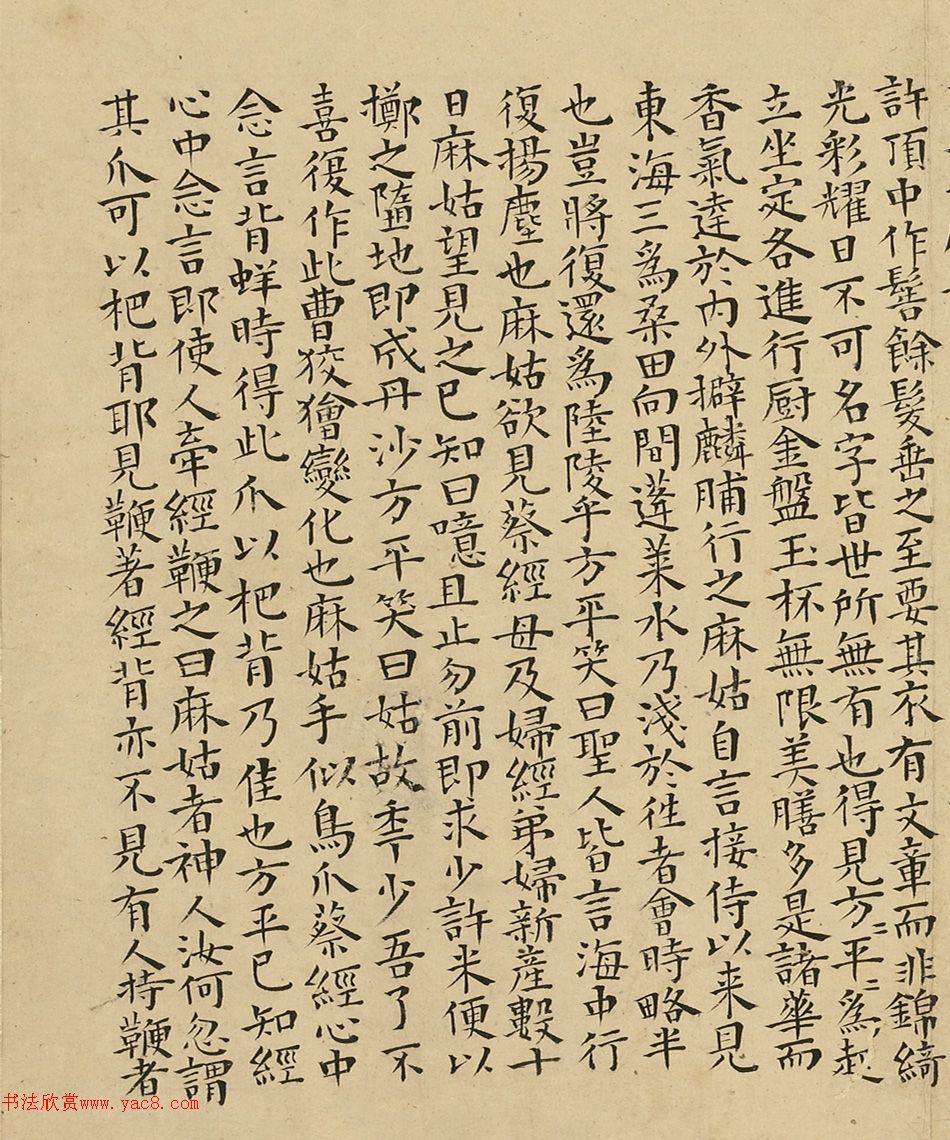 許頂中作髻餘髮垂之至要其衣有文章而非錦綺
光彩耀日不可名字皆世所無有也得見方〻平〻爲起
立坐定各進行厨金盤玉杯無限美膳多是諸華而
香氣達於内外擗麟脯行之麻姑自言接侍以来見
東海三爲桑田向間蓬莱水乃淺於往者會時略半
也豈將復還爲陸陵乎方平笑曰聖人皆言海中行
復揚塵也麻姑欲見蔡經母及婦經弟婦新産數十
日麻姑望見之已知曰噫且止勿前即求少許米便以
擲之墮地即成丹沙方平笑曰姑故秊少吾了不
喜復作此曹狡獪變化也麻姑手似鳥爪蔡經心中
念言背蛘時得此爪以杷背乃佳也方平已知經
心中念言即使人牽經鞭之曰麻姑者神人汝何忽謂
其爪可以杷背耶見鞭著經背亦不見有人持鞭者
书法欣赏www.yac8.com